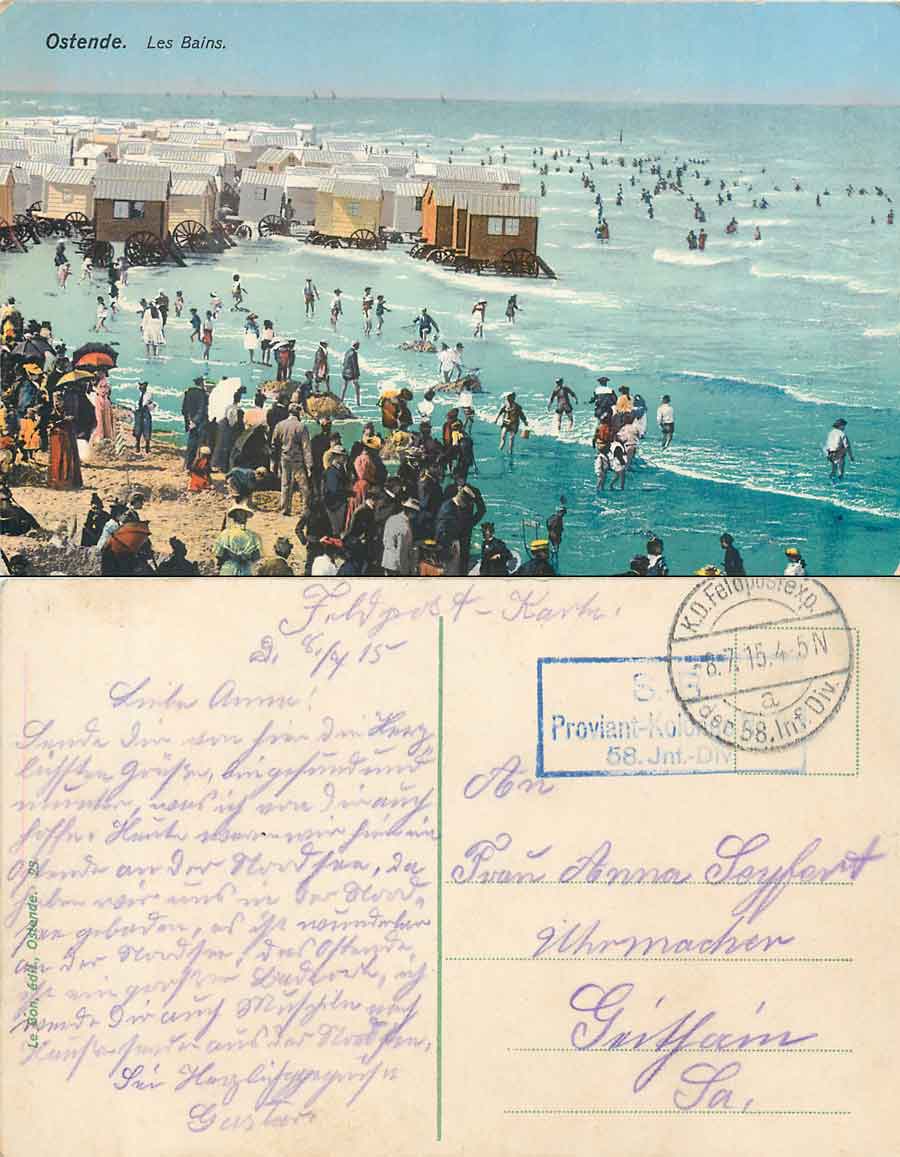 Ostende. Les Bains.
Feldpost-Karte.
D. 8./7 15
Liebe Anna!
Sende Dir von hier die Herz-
lichsten Grüße, gesund und
munter, was ich von Dir auch
hoffe. Heute waren wir hier in
Ostende an der Nordsee, da
haben wir uns in der Nord-
see gebadet, es ist wunderbar
an der Nordsee, das Ostende,
ist ein großer Badeort, ich
werde Dir auch Muscheln nach
Hause senden aus der Nordsee.
Sei Herzlich gegrüßt
Gustav
Le Bon, édit., Ostende. 23
K.D. Feldpostexp.
8.7.15. 4-5 N
a
der 58. Inf. Div.
S.B.
Proviant-Kolonne
58. Inf.-Div.
An
Frau Anna Seyfert
Uhrmacher
Geithain
Sa.